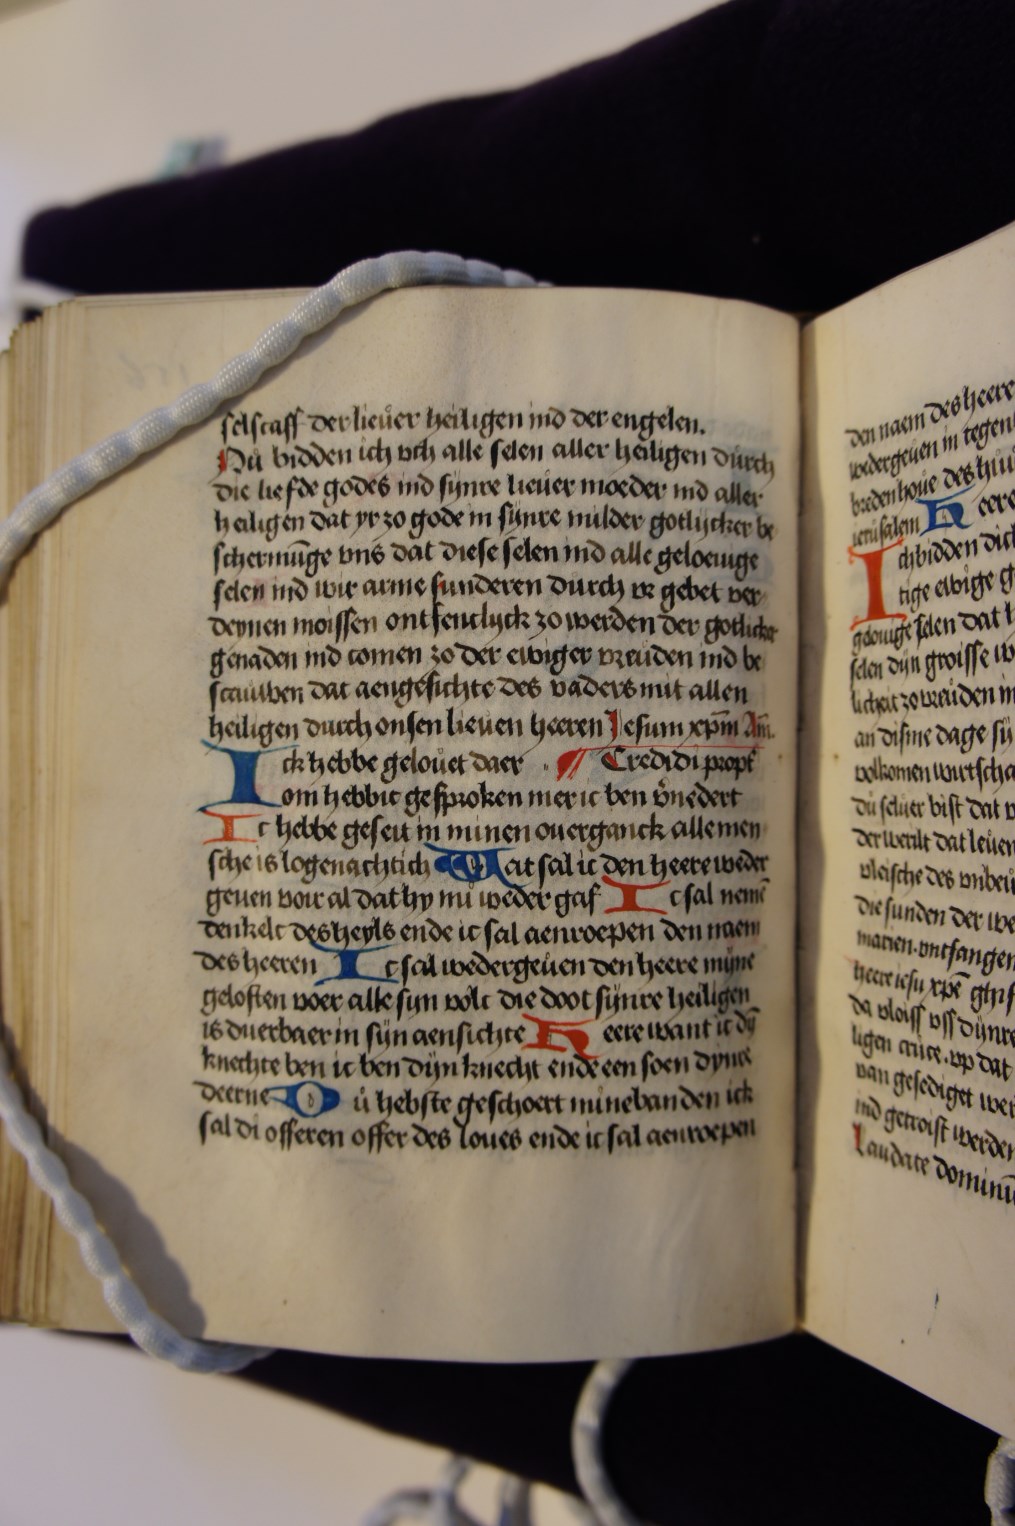 selscaff der lieuer heiligen ind der engelen.
Nu bidden ich uch alle selen aller heiligen durch
die liefde godes ind synre lieuer moeder ind aller
heiligen dat yr zo gode in synre milder gotlycker be
schermūge vns dat diese selen ind alle geloeuige
selen ind wir arme sunderen durch vr gebet ver
deynen moissen ontfenclyck zo werden der gotlicker
genaden ind comen zo der ewiger vreuden ind be
scauwen dat aengesichte des vaders mit allen
heiligen durch onsen lieuen heeren Jesum xpm̄ Am̄.
Ick hebbe gelouet daer Credidi propt̄
om hebbic gesproken mer ic ben v̄nedert
Ic hebbe geseit in minen ouerganck alle men
sche is logenachtich Wat sal ic den heere weder
geuen voir al dat hy mi weder gaf Ic sal nemē
den kelc des heyls ende ic sal aenroepen den naem
des heeren Ic sal wedergeuen den heere mijne
geloften voer alle syn volc die doot synre heiligen
is duerbaer in sijn aensichte Heere want ic dȳ
knechte ben ic ben dijn knecht ende een soen dynre
deerne Du hebste geschoert mine banden ick
sal di offeren offer des loues ende ic sal aenroepen
den naem des heere
wedergeuen in tegen
breden houe des hui
ierusalem Heere
Ich bidden dich
tige ewige g
gelouige selen dat
selen dijn groisse
licheit zo vreuden in
an disme dage
volkomen wirtscha
du seluer bist dat
der werelt dat leuen
vleische des
die sunden der we
marien. ontfangen
heere iesu xpē
da vloiss vss dijnre
ligen cruce. op dat
van gesediget wer
ind getroist werden
Laudate dominū